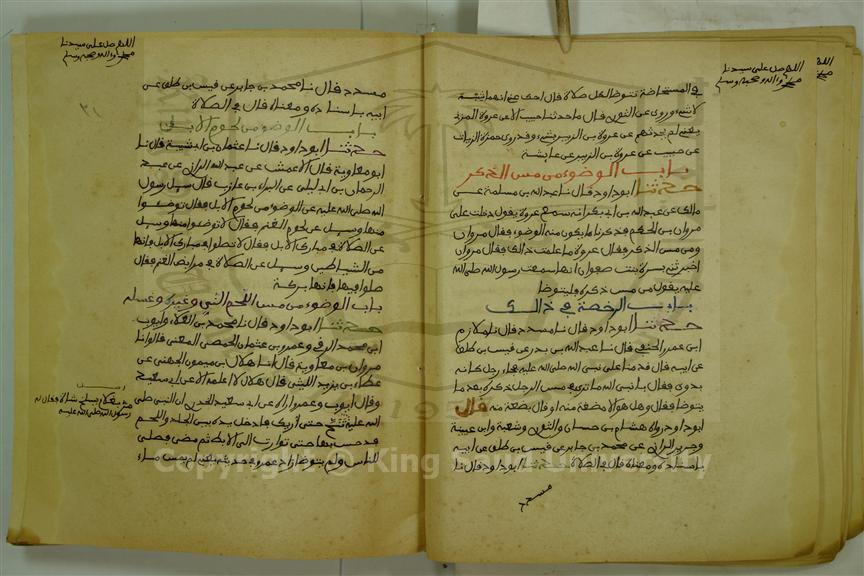 اللهم صل على سيدنا
محمد وآله وصحبه وسلم
في المستحاضة تتوضأ لكل صلاة قال احك عني انهما شبه
لا شيء وروي عن الثوري قال ما حدثنا حبيب الا عن عروة المزني
يعني لم يحدثهم عن عروة بن الزبير بشيء وقد روى حمزة الزيات
عن حبيب عن عروة بن الزبير عن عائشة
باب الوضوء من مس الذكر
حدثنا ابو داود قال نا عبد الله بن مسلمة عن
مالك عن عبد الله بن ابي بكر انه سمع عروة يقول دخلت على
مروان بن الحكم فذكرنا ما يكون منه الوضوء فقال مروان
ومن مس الذكر فقال عروة ما علمت ذالك فقال مروان
اخبرتني بسرة بنت صفوان انها سمعت رسول الله صلى الله
عليه يقول من مس ذكره فليتوضا
باب الرخصة في ذالك
حدثنا ابو داود قال نا مسدد قال نا ملازم
ابن عمرو الحنفي قال نا عبد الله بن بدر عن قيس بن طلق
عن ابيه قال قدمنا على نبي الله صلى الله عليه فجاء رجل كانه
بدوي فقال يا نبي الله ما ترى في مس الرجل ذكره بعد ما
يتوضا فقال وهل هو الا مضغة منه او قال بضعة منه قال
ابو داود رواه هشام بن حسان والثوري وشعبة وابن عيينة
وجرير الرازي عن محمد بن جابر عن قيس بن طلق عن ابيه
باسناده ومعناه قال في الصلاة حدثنا ابو داود قال نا
مسدد
اللهم صل على سيدنا
محمد وآله وصحبه وسلم
مسدد قال نا محمد بن جابر عن قيس بن طلق عن
ابيه باسناده ومعناه قال في الصلاة
باب الوضوء من لحوم الابل
حدثنا ابو داود قال نا عثمان بن ابي شيبة قال نا
ابو معاوية قال نا الاعمش عن عبد الله الرازي عن عبد
الرحمان بن ابي ليلى عن البراء بن عازب قال سيل رسول
الله صلى الله عليه عن الوضوء من لحوم الابل فقال توضئوا
منها وسيل عن لحوم الغنم فقال لا توضئوا منها وسيل
عن الصلاة في مبارك الابل فقال لا تصلوا في مبارك الابل فانها
من الشياطين وسيل عن الصلاة في مرابض الغنم فقال
صلوا فيها فانها بركة
باب الوضوء من مس اللحم النيء وغيره وغسله
حدثنا ابو داود قال نا محمد بن العلاء وايوب
ابن محمد الرقي وعمرو بن عثمان الحمصي المعنى قالوا نا
مروان بن معاوية قال انا هلال بن ميمون الجهني عن
عطاء بن يزيد الليثي قال هلال لا اعلمه الا عن ابي سعيد
وقال ايوب وعمرو اراه عن ابي سعيد الخدري ان النبي صلى
الله عليه تنح حتى اريك فادخل يده بين الجلد واللحم
فدحس بها حتى توارت الى الابط ثم مضى فصلى
للناس ولم يتوضا زاد عمرو في حديثه يعني لم يمس ماء
مر بغلام يسلخ شاة فقال له
رسول الله صلى الله عليه
Copyright © King Saud University
1957